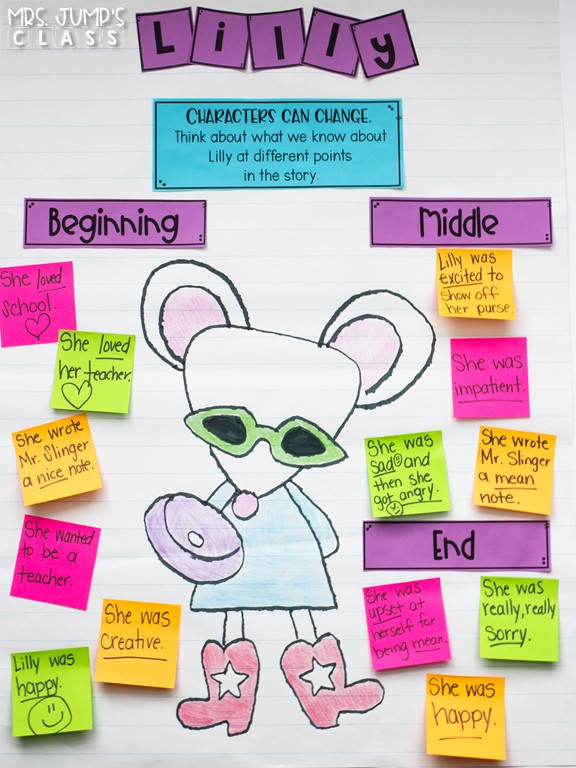 MRS. JUMP'S
CLASS
Lilly
CHARACTERS CAN CHANGE.
Think about what we know about
Lilly at different points
in the story.
Beginning
She loved
school.
She loved
her teacher.
She wrote
Mr. Slinger
a nice note.
She wanted
to be a
teacher.
She was
creative.
Lilly was
happy.
Middle
Lilly was
excited to
show off
her purse.
She was
impatient.
She was
sad and
then she
got angry.
She wrote
Mr. Slinger
a mean
note.
End
She was
upset at
herself for
being mean.
She was
really, really
sorry.
She was
happy.